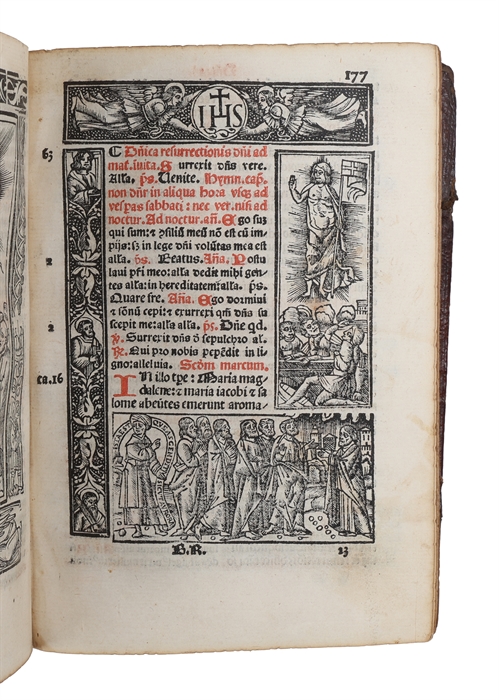 177
IHS
63
C Dñica resurrectionis dñi ad
mat. ĩuita. Surrexit dñs vere.
Alla. ps. Uenite. Hymn. cap.
non dñr in aliqua hora vsq; ad
vesp̃as sabbati: nec ver. nisi ad
noctur. Ad noctur. añ. Ego suz
qui sum: ⁊ ↄsiliũ meũ nõ est cũ im-
pijs: sz in lege dñi volũtas mea est
2
alla. ps. Beatus. Aña. Postu
laui pr̃ẽ meũ: alla dedit mihi gen-
tes alla: in hereditatem: alla. ps.
Quare fre. Aña. Ego dormiui
⁊ sõnũ cepi: ⁊ exurrexi qm̃ dñs su
2
scepit me: alla alla. ps. Dñe qd.
℣. Surrexit dñs d̃ sepulchro al.
℟. Qui pro nobis pepẽdit in li
gno: alleluia. Scdm marcum.
ca.16
IN illo tp̃e: Maria mag-
dalene: ⁊ maria iacobi ⁊ sa
lome abeũtes emerunt aroma
B.R.
23